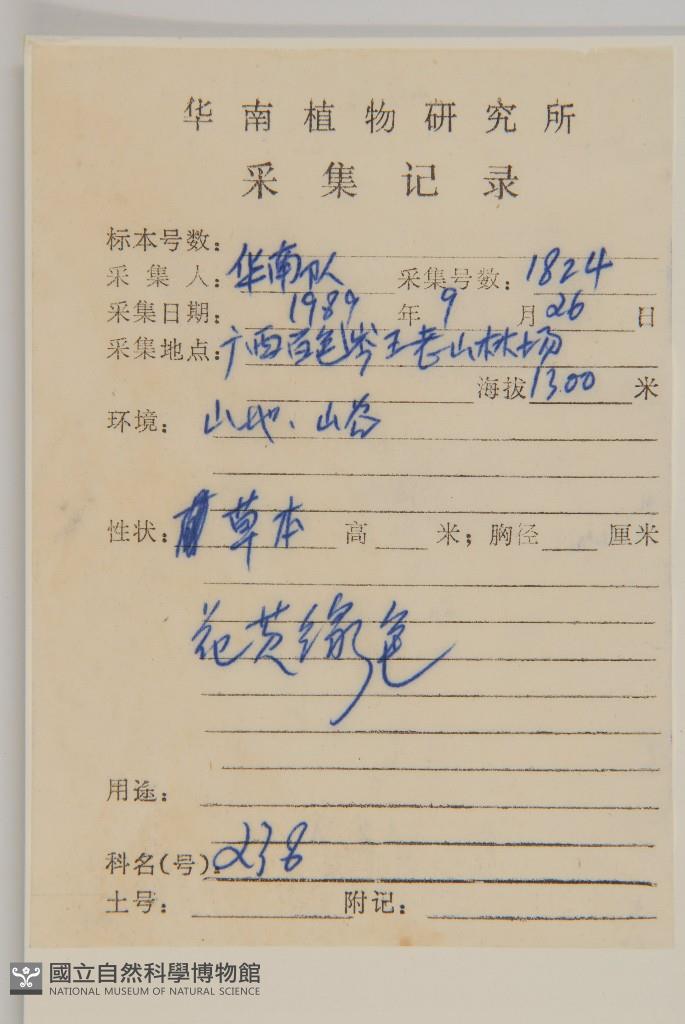 华南植物研究所
采集记录
标本号数：
采集人：华南队 采集号数：1824
采集日期：1989年9月26日
采集地点：广西百色岑王老山林场
海拔1300米
环境：山地、山谷
性状：草本 高 米；胸径 厘米
花黄绿色
用途：
科名(号)：238
土号： 附记：
國立自然科學博物館
NATIONAL MUSEUM OF NATURAL SCIENCE